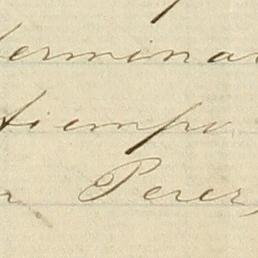 termina
tiempo
n Perez,